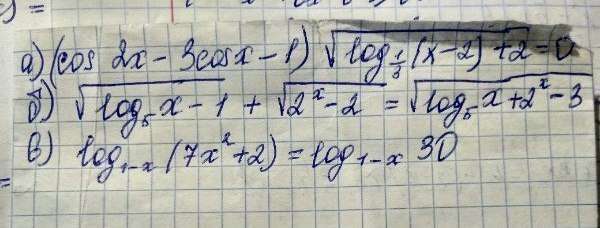 а) (cos 2x - 3cosx - 1) √(log_{1/3} (x-2) + 2) = 0
б) √(log_5 x - 1) + √(2^x - 2) = √(log_5 x + 2^x - 3)
в) log_{1-x} (7x^2+2) = log_{1-x} 30